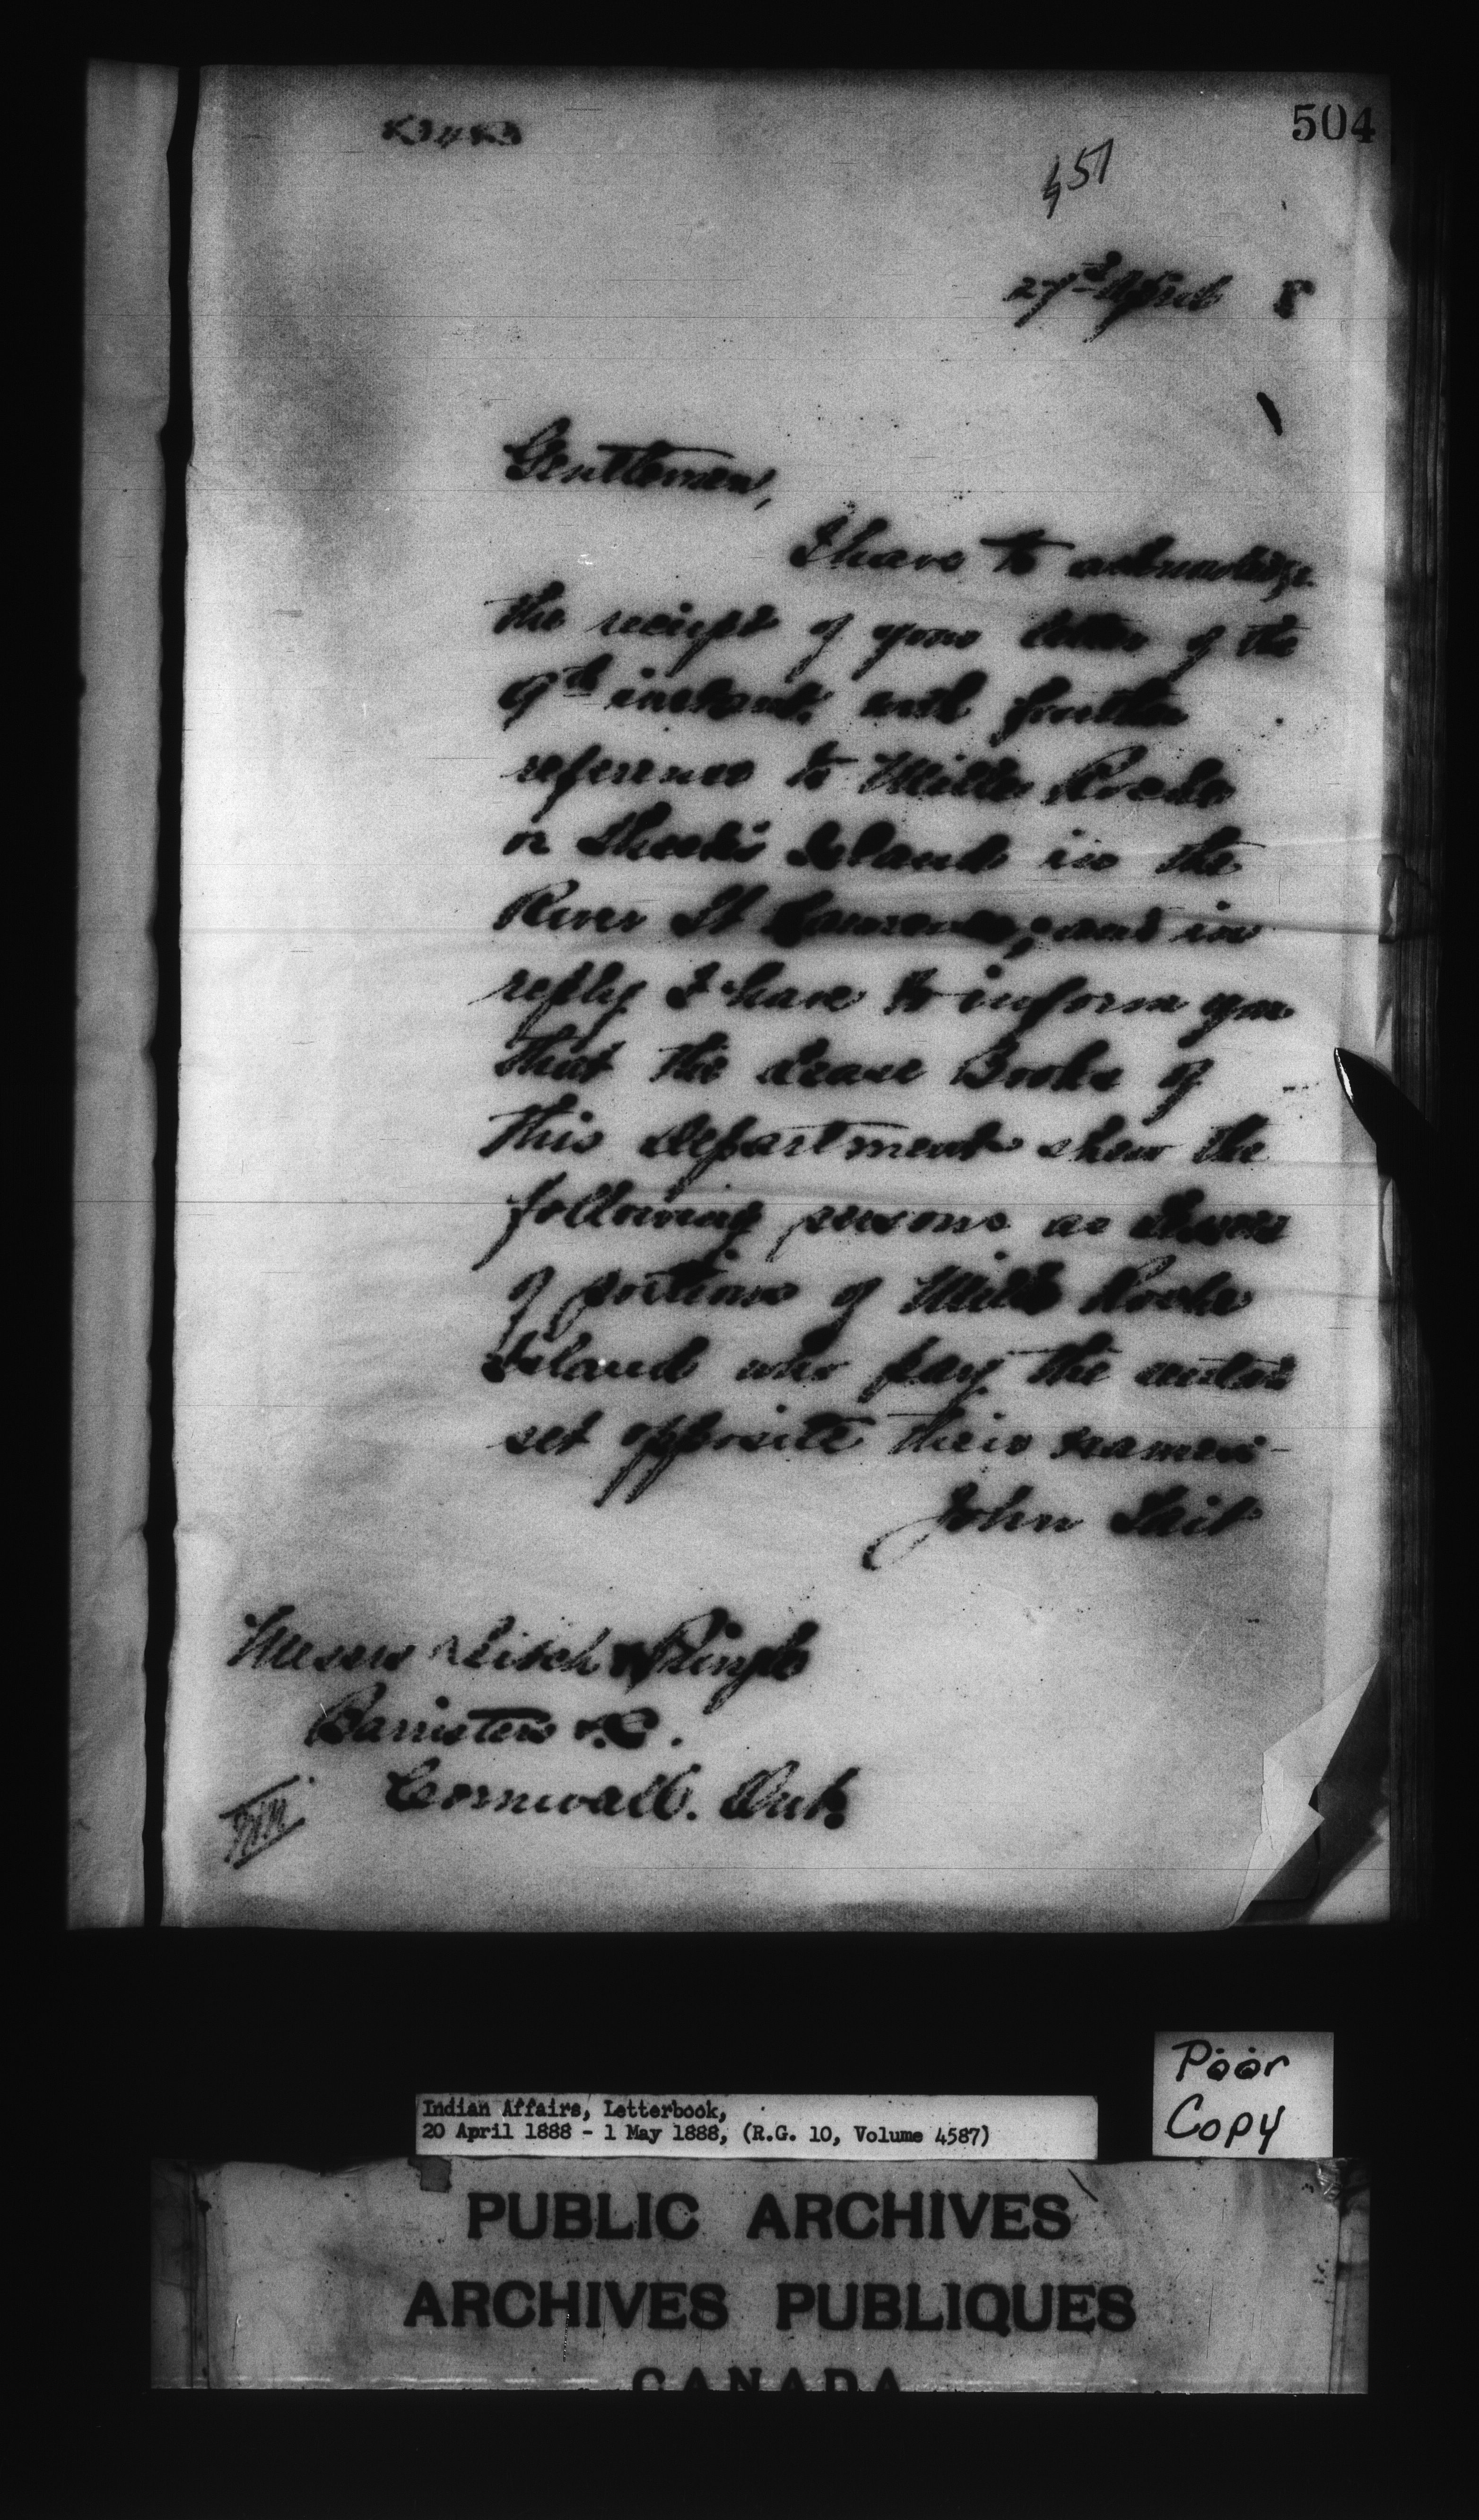 504
451
27th April 8
Gentlemen,
I have to acknowledge
the reciept of your letter of the
9th instant, with further
reference to Mille Roche
or Sheek's Island in the
River St Lawrence; and in
reply I have to inform you
that the Lease Books of
this Department shew the
following persons as
of portions of Mille Roche
Island who pay the
set opposite their names-
John
Messrs Leitch & Pringle
Barristers &c.
Cornwall. Ont.
Poor
Copy
Indian Affairs, Letterbook,
20 April 1888 - 1 May 1888, (R.G. 10, Volume 4587)
PUBLIC ARCHIVES
ARCHIVES PUBLIQUES
CANADA